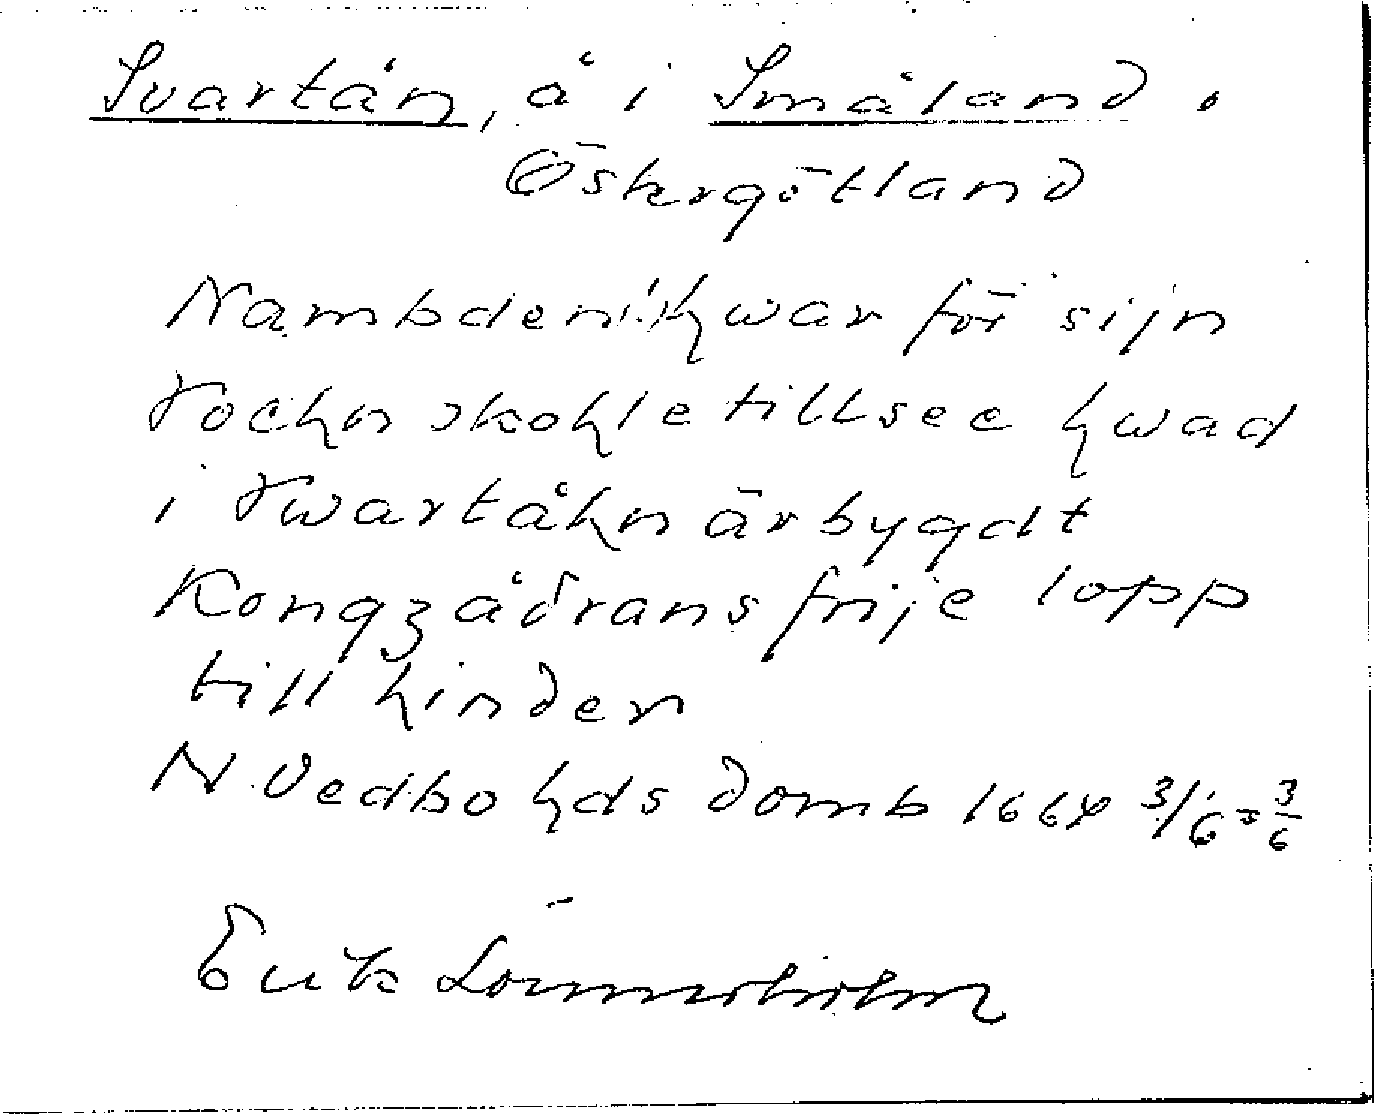 Svartån, å i Småland o
Östergötland
Nambden! hwar för sijn
Sochn skohle tillsee hwad
i Swartåhn är bygdt
Kongzådrans frije lopp
till hinder
N. Vedbo hds domb 1664 3/6 = 3/6
Erik Lönnerholm